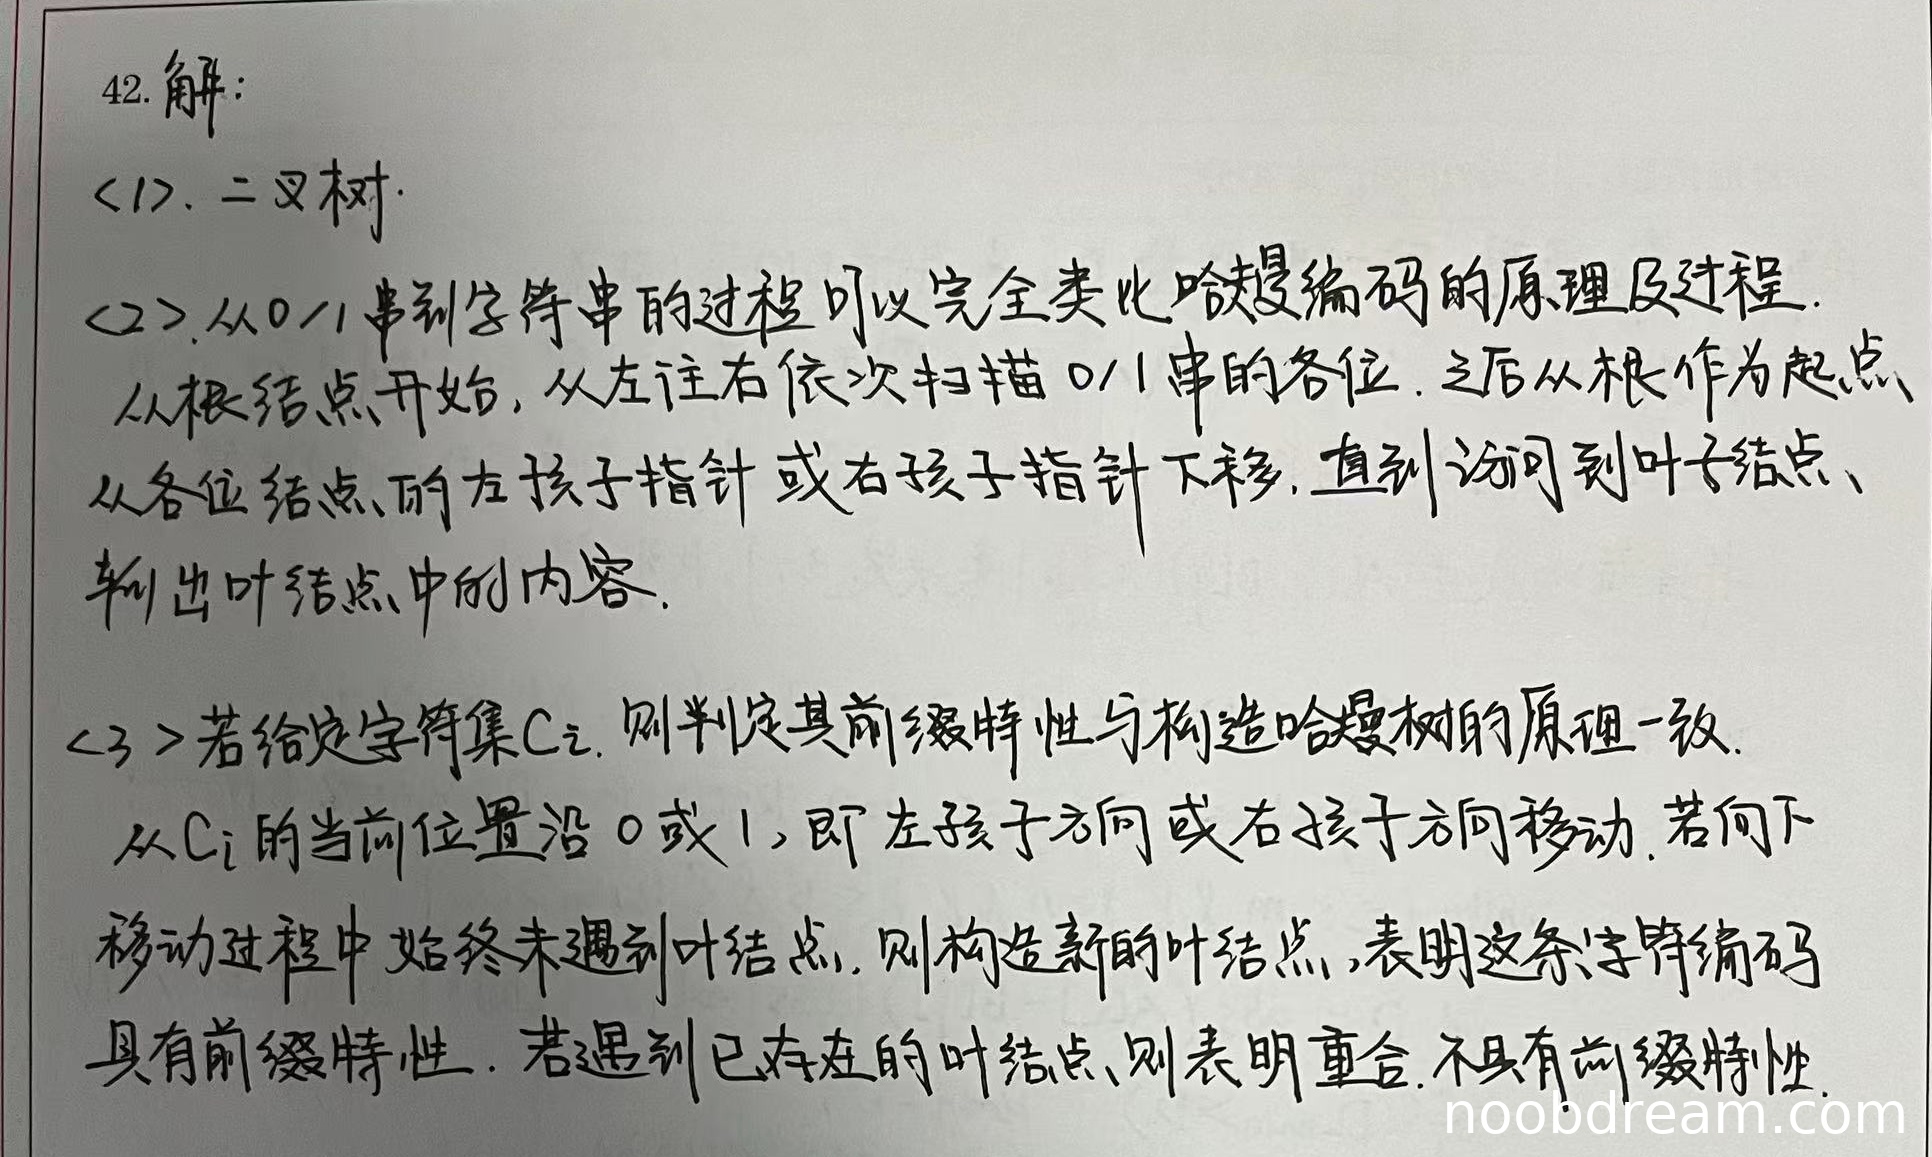 42. 解:
<1>. 二叉树.
<2>. 从0/1串到字符串的过程可以完全类比哈夫曼编码的原理及过程.
从根结点开始, 从左往右依次扫描0/1串的各位. 之后从根作为起点、
从各位结点的左孩子指针或右孩子指针下移. 直到访问到叶子结点、
输出叶结点中的内容.
<3>若给定字符集Ci. 则判定其前缀特性与构造哈夫曼树的原理一致.
从Ci的当前位置沿0或1, 即左孩子方向或右孩子方向移动. 若向下
移动过程中始终未遇到叶结点. 则构造新的叶结点, 表明这条字符编码
具有前缀特性. 若遇到已存在的叶结点、则表明重合. 不具有前缀特性.
noobdream.com